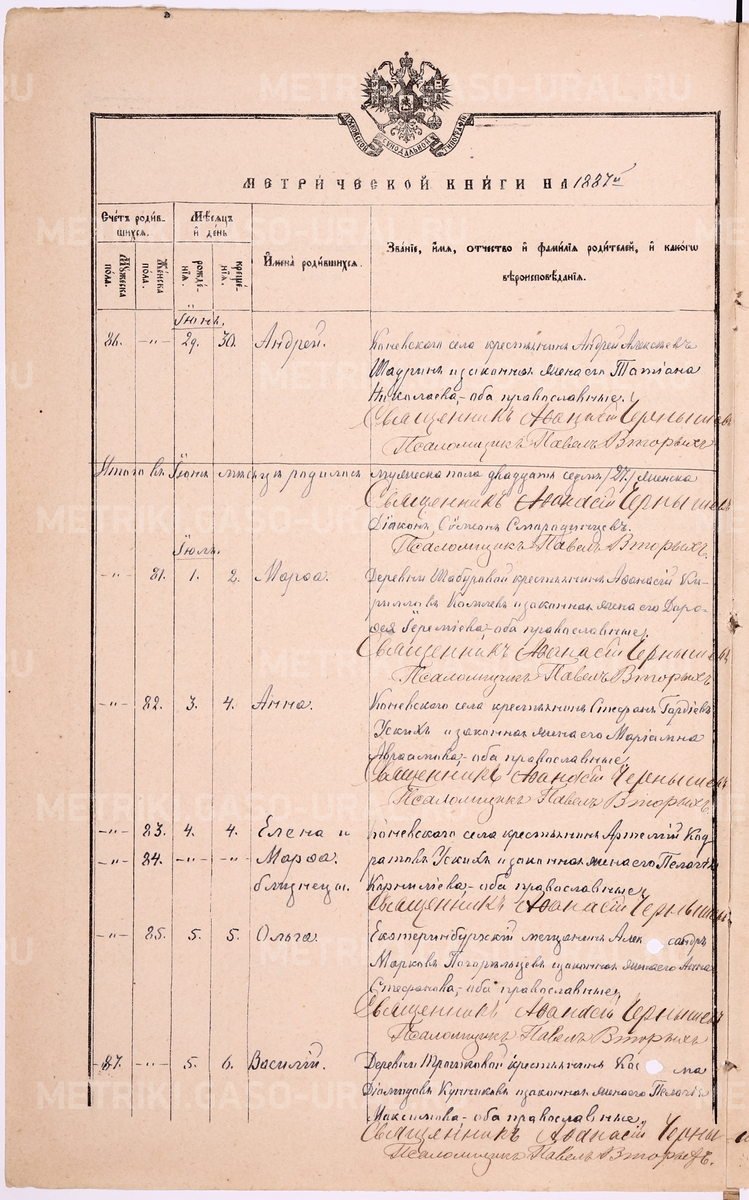 МЕТРИЧЕСКОЙ КНИГИ НА 1887й
Счетъ родившихся.
Мужеска пола.
Женска пола.
Мѣсяцъ и день
рождения.
крещения.
Имена родившихся.
Званіе, имя, отчество и фамилія родителей, и какого вѣроисповѣданія.
Іюнь.
86. -„- 29. 30. Андрей. Коневского села крестьянинъ Андрей Алексѣевъ
и законная жена его Татіана
Николаева, оба православные.
Священникъ Аѳанасій Чернышевъ
Псаломщикъ Павелъ Вторыхъ
Итого въ Іюнѣ мѣсяцѣ родилось мужеска пола двадцать семь /27/ женска
Священникъ Аѳанасій Чернышевъ
Діаконъ Симеонъ
Псаломщикъ Павелъ Вторыхъ.
Іюль.
-„- 81. 1. 2. Марѳа. Деревни Шабуровой крестьянинъ Аѳанасій Ки-
рилловъ и законная жена его Доро-
ѳея Іереміева, оба православные.
Священникъ Аѳанасій Чернышевъ
Псаломщикъ Павелъ Вторыхъ
-„- 82. 3. 4. Анна. Коневского села крестьянинъ Стефанъ Гордіевъ
Ускихъ и законная жена его Маріамна
Авраамова, оба православные
Священникъ Аѳанасій Чернышевъ
Псаломщикъ Павелъ Вторыхъ.
-„- 83. 4. 4. Елена и Коневского села крестьянинъ Артемій Код-
-„- 84. -„- -„- Марѳа. ратовъ Ускихъ и законная жена его Пелагія
близнецы. Корниліева, оба православные
Священникъ Аѳанасій Чернышевъ
-„- 85. 5. 5. Ольга. Екатеринбургскій мещанинъ Александръ
Марковъ и законная жена его Анна
Стефанова, оба православные
Священникъ Аѳанасій Чернышевъ
Псаломщикъ Павелъ Вторыхъ
87. -„- 5. 6. Василій. Деревни крестьянинъ Косма
Діомидовъ и законная жена его Пелагія
Максимова, оба православные.
Священникъ Аѳанасій Черны
Псаломщикъ Павелъ Вторыхъ.
METRIKI.GASO-URAL.RU